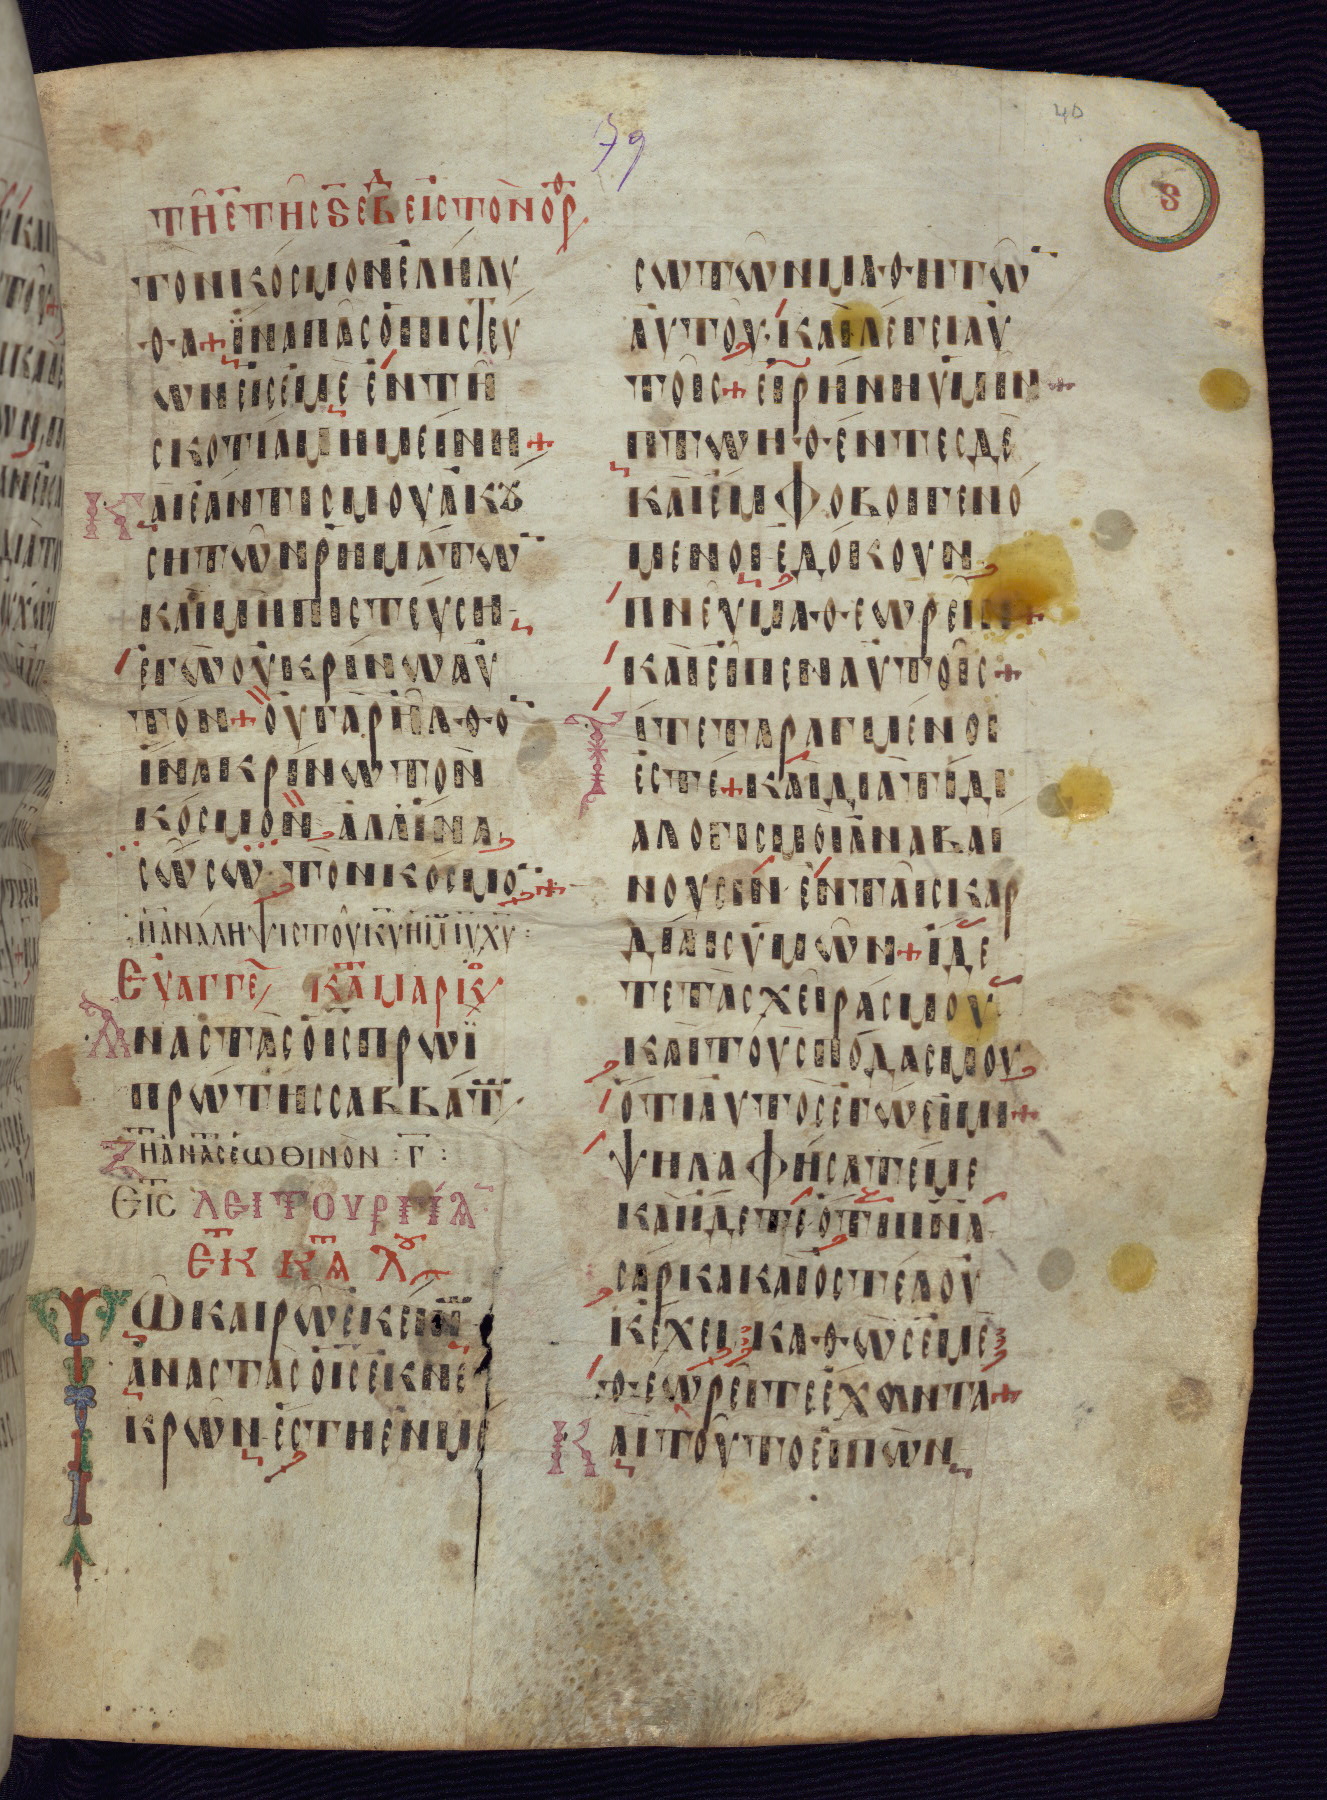 79
40
ς
ΤΗ Ε ΤΗΣ Ϛ ΕΒΔ ΕΙΣ ΤΟΝ ΟΡΘ
ΤΟΝΚΟΣΜΟΝΕΛΗΛΥ
Θ·Α+ΙΝΑΠΑΣΟΠΙΣΤΕΥ
ΩΝΕΙΣΕΜΕ ΕΝΤΗ
ΣΚΟΤΙΑΜΗΜΕΙΝΗ+
ΚΑΙΕΑΝΤΙΣΜΟΥΑΚΟΥ
ΣΗΤΩΝΡΗΜΑΤΩ
ΚΑΙΜΗΠΙΣΤΕΥΣΗ
ΕΓΩΟΥΚΡΙΝΩΑΥ
ΤΟΝ+ΟΥΓΑΡΗΛ·Θ·Ο
ΙΝΑΚΡΙΝΩΤΟΝ
ΚΟΣΜΟΝ ΑΛΛΙΝΑ
ΣΩΣΩ ΤΟΝΚΟΣΜΟ+
Η ΑΝΑΛΗΨΙΣ ΤΟΥ ΚΥ ΗΜ ΙΥ ΧΥ
ΕΥΑΓΓΕ ΚΑΤ ΜΑΡΚ
ΑΝΑΣΤΑΣΟΙΣΠΡΩΙ
ΠΡΩΤΗΣΑΒΒΑΤ
ΖΗ ΑΝΑΣ ΕΩΘΙΝΟΝ : Γ :
ΕΙΣ ΛΕΙΤΟΥΡΓΙΑ
ΕΚ ΚΤΑ ΛΟΥ
ΤΩΚΑΙΡΩΕΚΕΙΝ
ΑΝΑΣΤΑΣΟΙΣΕΚΝΕ
ΚΡΩΝ ΕΣΤΗΕΝΜΕ
ΣΩΤΩΝΜΑ·Θ·ΗΤΩ
ΑΥΤΟΥ·ΚΑΙΛΕΓΕΙΑΥ
ΤΟΙΣ+ΕΙΡΗΝΗΥΜΙΝ+
ΠΤΩΗ·Θ·ΕΝΤΕΣΔΕ
ΚΑΙΕΜΦΟΒΟΙΓΕΝΟ
ΜΕΝΟΙΕΔΟΚΟΥΝ
ΠΝΕΥΜΑ·Θ·ΕΩΡΕΙΝ+
ΚΑΙΕΙΠΕΝΑΥΤΟΙΣ+
ΤΙΤΕΤΑΡΑΓΜΕΝΟΙ
ΕΣΤΕ+ΚΑΙΔΙΑΤΙΔΙ
ΑΛΟΓΙΣΜΟΙΑΝΑΒΑΙ
ΝΟΥΣΙΝ ΕΝΤΑΙΣΚΑΡ
ΔΙΑΙΣΥΜΩΝ+ΙΔΕ
ΤΕΤΑΣΧΕΙΡΑΣΜΟΥ
ΚΑΙΤΟΥΣΠΟΔΑΣΜΟΥ
ΟΤΙΑΥΤΟΣΕΓΩΕΙΜΙ+
ΨΗΛΑΦΗΣΑΤΕΜΕ
ΚΑΙΙΔΕΤΕΟΤΙΠΝΑ
ΣΑΡΚΑΚΑΙΟΣΤΕΑΟΥ
ΚΕΧΕΙ ΚΑ·Θ·ΩΣΕΜΕ
·Θ·ΕΩΡΕΙΤΕΕΧΟΝΤΑ+
ΚΑΙΤΟΥΤΟΕΙΠΩΝ